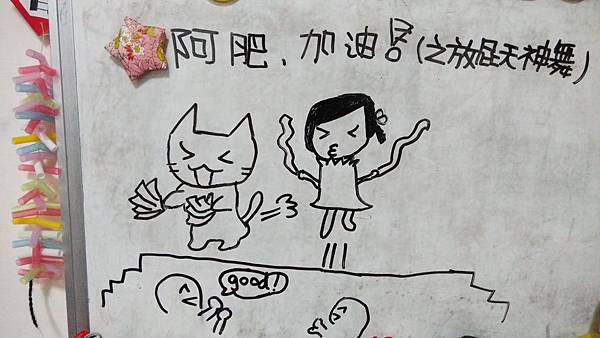 阿肥、加油!(之放屁天神舞)
good!